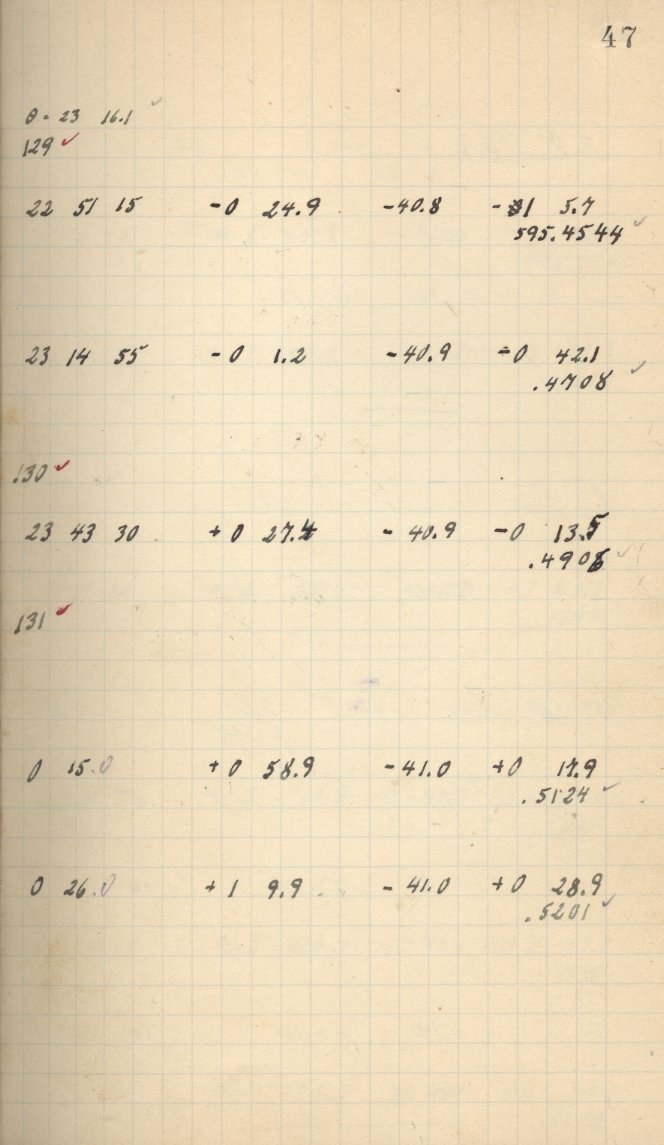 47
θ = 23 16.1 ✓
129 ✓
22 51 15 -0 24.9 -40.8 -1 5.7
595.4544 ✓
23 14 55 -0 1.2 -40.9 -0 42.1
.4708 ✓
130 ✓
23 43 30 +0 27.4 -40.9 -0 13.5
.4906 ✓
131 ✓
0 15.0 +0 58.9 -41.0 +0 17.9
.5124 ✓
0 26.0 +1 9.9 -41.0 +0 28.9
.5201 ✓